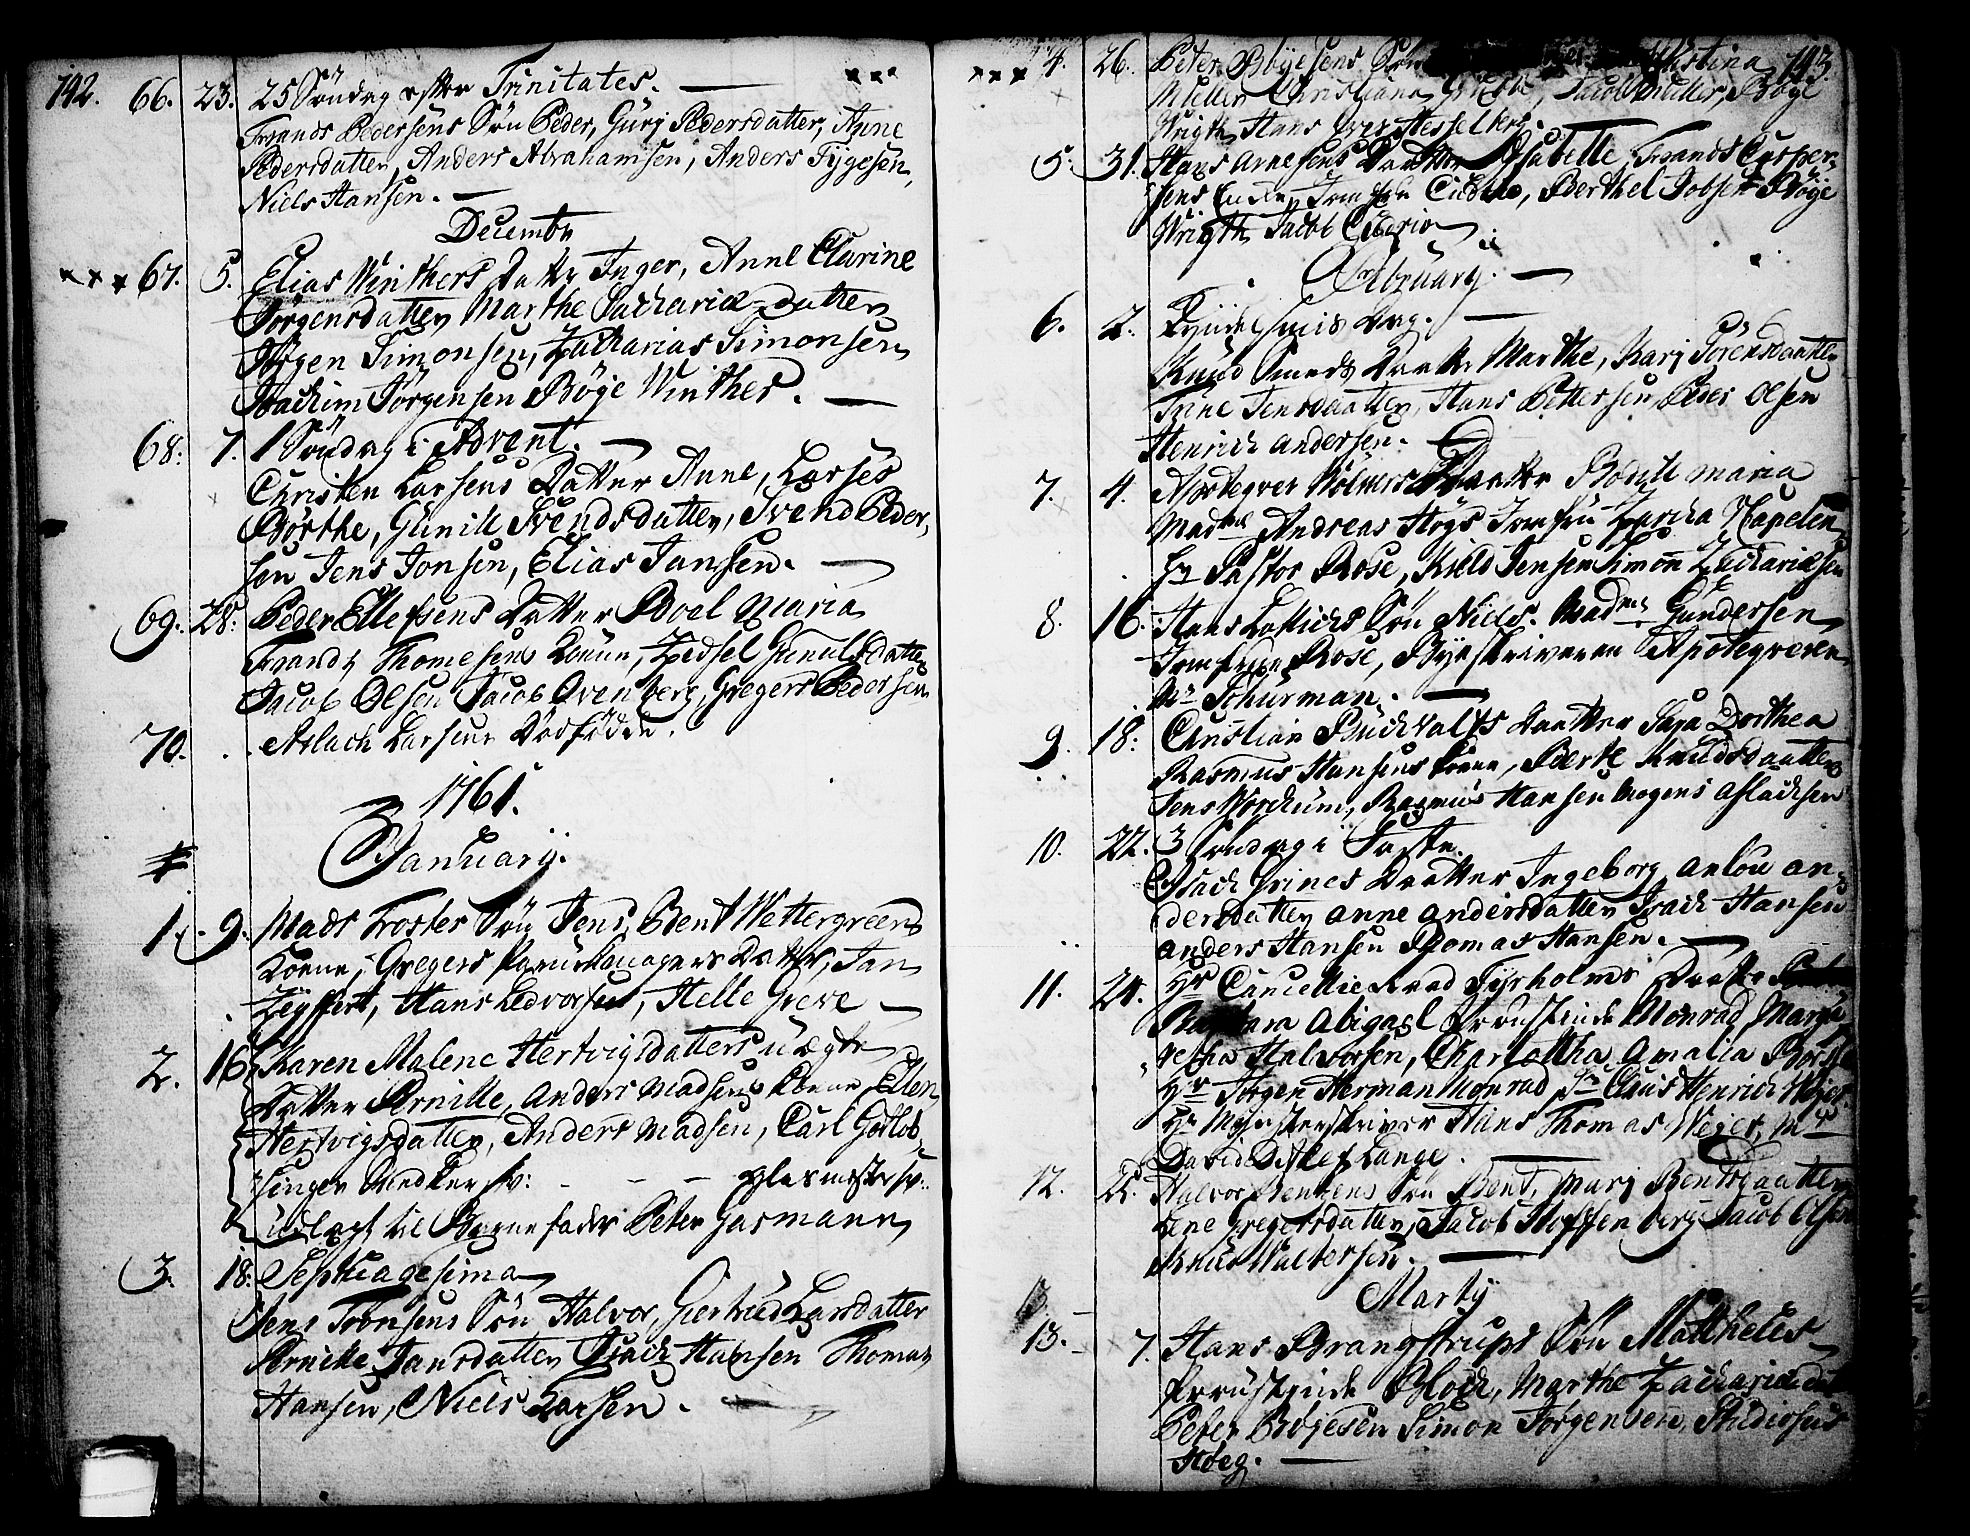 192.
66. 23. 25 Søndag efter Trinitates.
Frands Pedersens Søn Peder, Gurj Pedersdatter, Anne
Pedersdatter, Anders Abrahamsen, Anders Tygesen,
Niels Hansen.
Decembr
67. 5. Elias Winthers Datter Inger, Anne Clarine
Jørgensdatter Marthe Zachariædatter
Jørgen Simonsen, Zacharias Simonsen
Joachim Jørgensen Bøje Winther.
68. 7. 1 Søndag i Advent.
Christen Larsens Datter Anne, Larses
Børthe, Gunild Svendsdatter, Svend Peder-
sen Jens Jonsen, Elias Jansen.
69. 28. Peder Ellefsens Datter Boel Maria
Frands Thomesens Konne, Zedsel Gunulfsdatter
Jacob Olsen Jacob Ovenberg, Gregers Pedersen
70. Aslach Larsens Dødfødde.
1761.
Januarij.
1. 9. Mads Trosles Søn Jens, Bent Wettergreens
Konne, Gregers Datter, Jan
Zeyffert, Hans Ledvorsen, Helle Greve
2. 16. Karen Malene Hertvigsdatters uægte
Datter Pernille, Anders Madsens Konne Ellen
Hertvigsdatter, Anders Madsen, Carl Gotlob
singer
udlagt til Barnefader Peter Gasmann
3. 18. Septuagesima
Jens Tobnsens Søn Halvor, Giertrud Larsdatter
Pernille Jansdatter Isach Hansen Thomas
Hansen, Niels Larsen.
193.
4. 26. Peter Bøyesens Søn Christina
Muller Christiana Jacob Muller, Bøye
Wrigth Hans Iver Hesselberg.
5. 31. Hans Arnesens Daatter Isabelle, Frands Casper-
sens Jomfrue Berthel Jobsen Bøje
Wrigth Jacob
February.
6. 2. Kyndelsmis Dag.
Knud Smeds Daatter Marthe, Karj Sørensdaatter
Trine Jensdaatter, Hans Pettersen Peder Olsen
Henrich Andersen.
7. 4. Apoteqver Holmers Daatter Bodill Maria
Madme Andreas Høys Jomfru Kapelen
Hr Pastor Rose, Kield Jensen Simon Zachariæsen
8. 16. Hans Søn Niels. Madme Gundersen
Jomfrue Rose, Byeskriveren Apoteqveren
Mr Schurman.
9. 18. Christian Buchvalts Daatter Sara Dorthea
Rasmus Hansens Konne, Berte Knudsdaatter
Jens Worchum, Rasmus Hansen Mogens Aslachsen
10. 22. 3 Søndag i Faste.
Isach Grines Daatter Ingeborg, Anlou An-
dersdatter Anne Andersdatter Isach Hansen
Anders Hansen Thomas Hansen.
11. 24. Hr Cancellie Raad Tyrholms Daatter
Barbara Abigael Frue Stinde Monrad, Margre
retha Halvorsen, Charlottha Amalia
Hr Jørgen Herman Monrad Sr Claus Henrich Wejer
Hr Mynsterskriver Hans Thomas Wejer, Mr
David Detlef Lange.
12. 25. Halvor Bentsens Søn Bent, Marj Bentsdaatter
Lene Gregersdatter, Jacob Stoffenberg Jacob Olsen
Knud Halversen.
Martij
13. 7. Hans Brangstrups Søn Mattheus
Frue Stinde Bloch, Marthe Zachariæ dat
Peter Bøjesen Simon Jørgensen, Studiosus
Høeg.